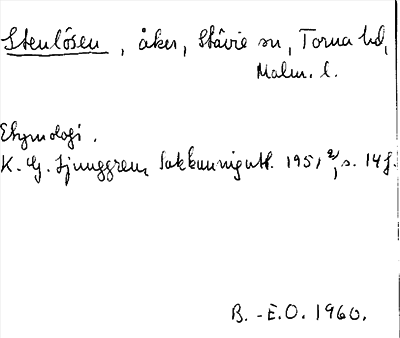 Stenlösen, åker, Stävie sn, Torna hd,
Malm. l.
Etymologi.
K. G. Ljunggren, 1951 2), s. 14 f.
B.-E.O. 1960.